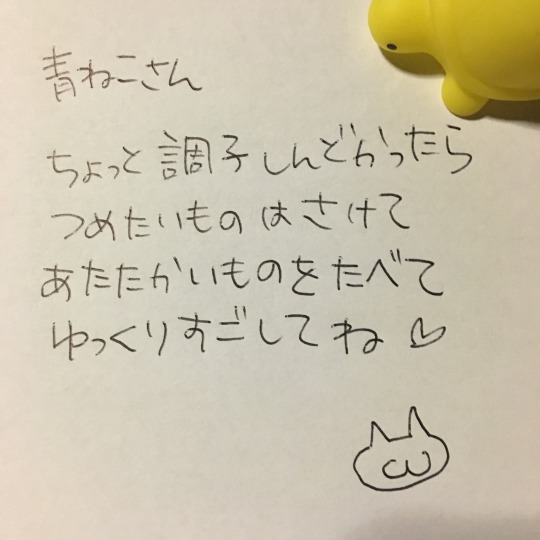 青ねこさん
ちょっと調子しんどかったら
つめたいものはさけて
あたたかいものをたべて
ゆっくりすごしてね♡